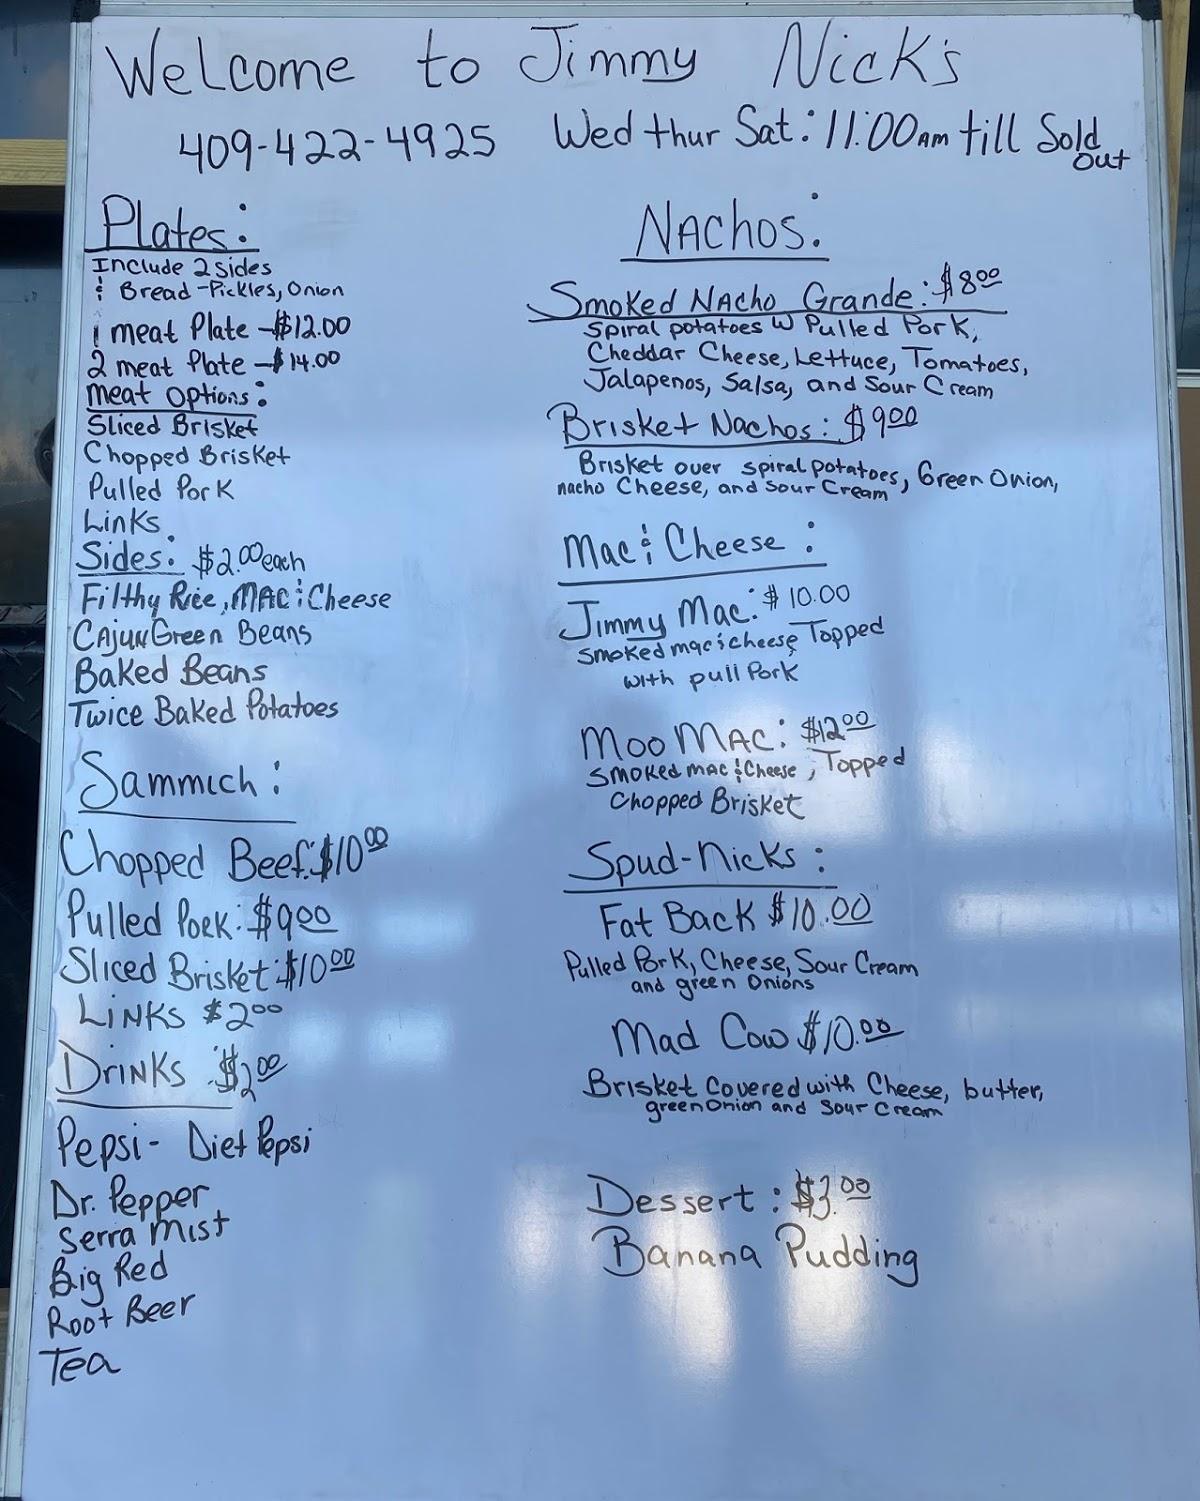 Welcome to Jimmy Nick's
409-422-4925 Wed thur Sat: 11:00AM till Sold out
Plates:
Include 2 sides
& Bread-Pickles, Onion
1 meat Plate -$12.00
2 meat Plate -$14.00
Meat Options:
Sliced Brisket
Chopped Brisket
Pulled Pork
Links
Sides: $2.00 each
Filthy Rice, MAC & Cheese
Cajun Green Beans
Baked Beans
Twice Baked Potatoes
Sammich:
Chopped Beef: $10.00
Pulled Pork: $9.00
Sliced Brisket: $10.00
Links $2.00
Drinks $2.00
Pepsi - Diet Pepsi
Dr. Pepper
Serra Mist
Big Red
Root Beer
Tea
Nachos:
Smoked Nacho Grande: $8.00
Spiral potatoes W Pulled Pork,
Cheddar Cheese, Lettuce, Tomatoes,
Jalapenos, Salsa, and Sour Cream
Brisket Nachos: $9.00
Brisket over spiral potatoes, Green Onion,
nacho Cheese, and sour Cream
Mac & Cheese:
Jimmy Mac: $10.00
Smoked mac & cheese Topped
with pull Pork
Moo MAC: $12.00
Smoked mac & Cheese, Topped
Chopped Brisket
Spud-Nicks:
Fat Back $10.00
Pulled Pork, Cheese, Sour Cream
and green Onions
Mad Cow $10.00
Brisket Covered with Cheese, butter,
green Onion and Sour Cream
Dessert: $3.00
Banana Pudding